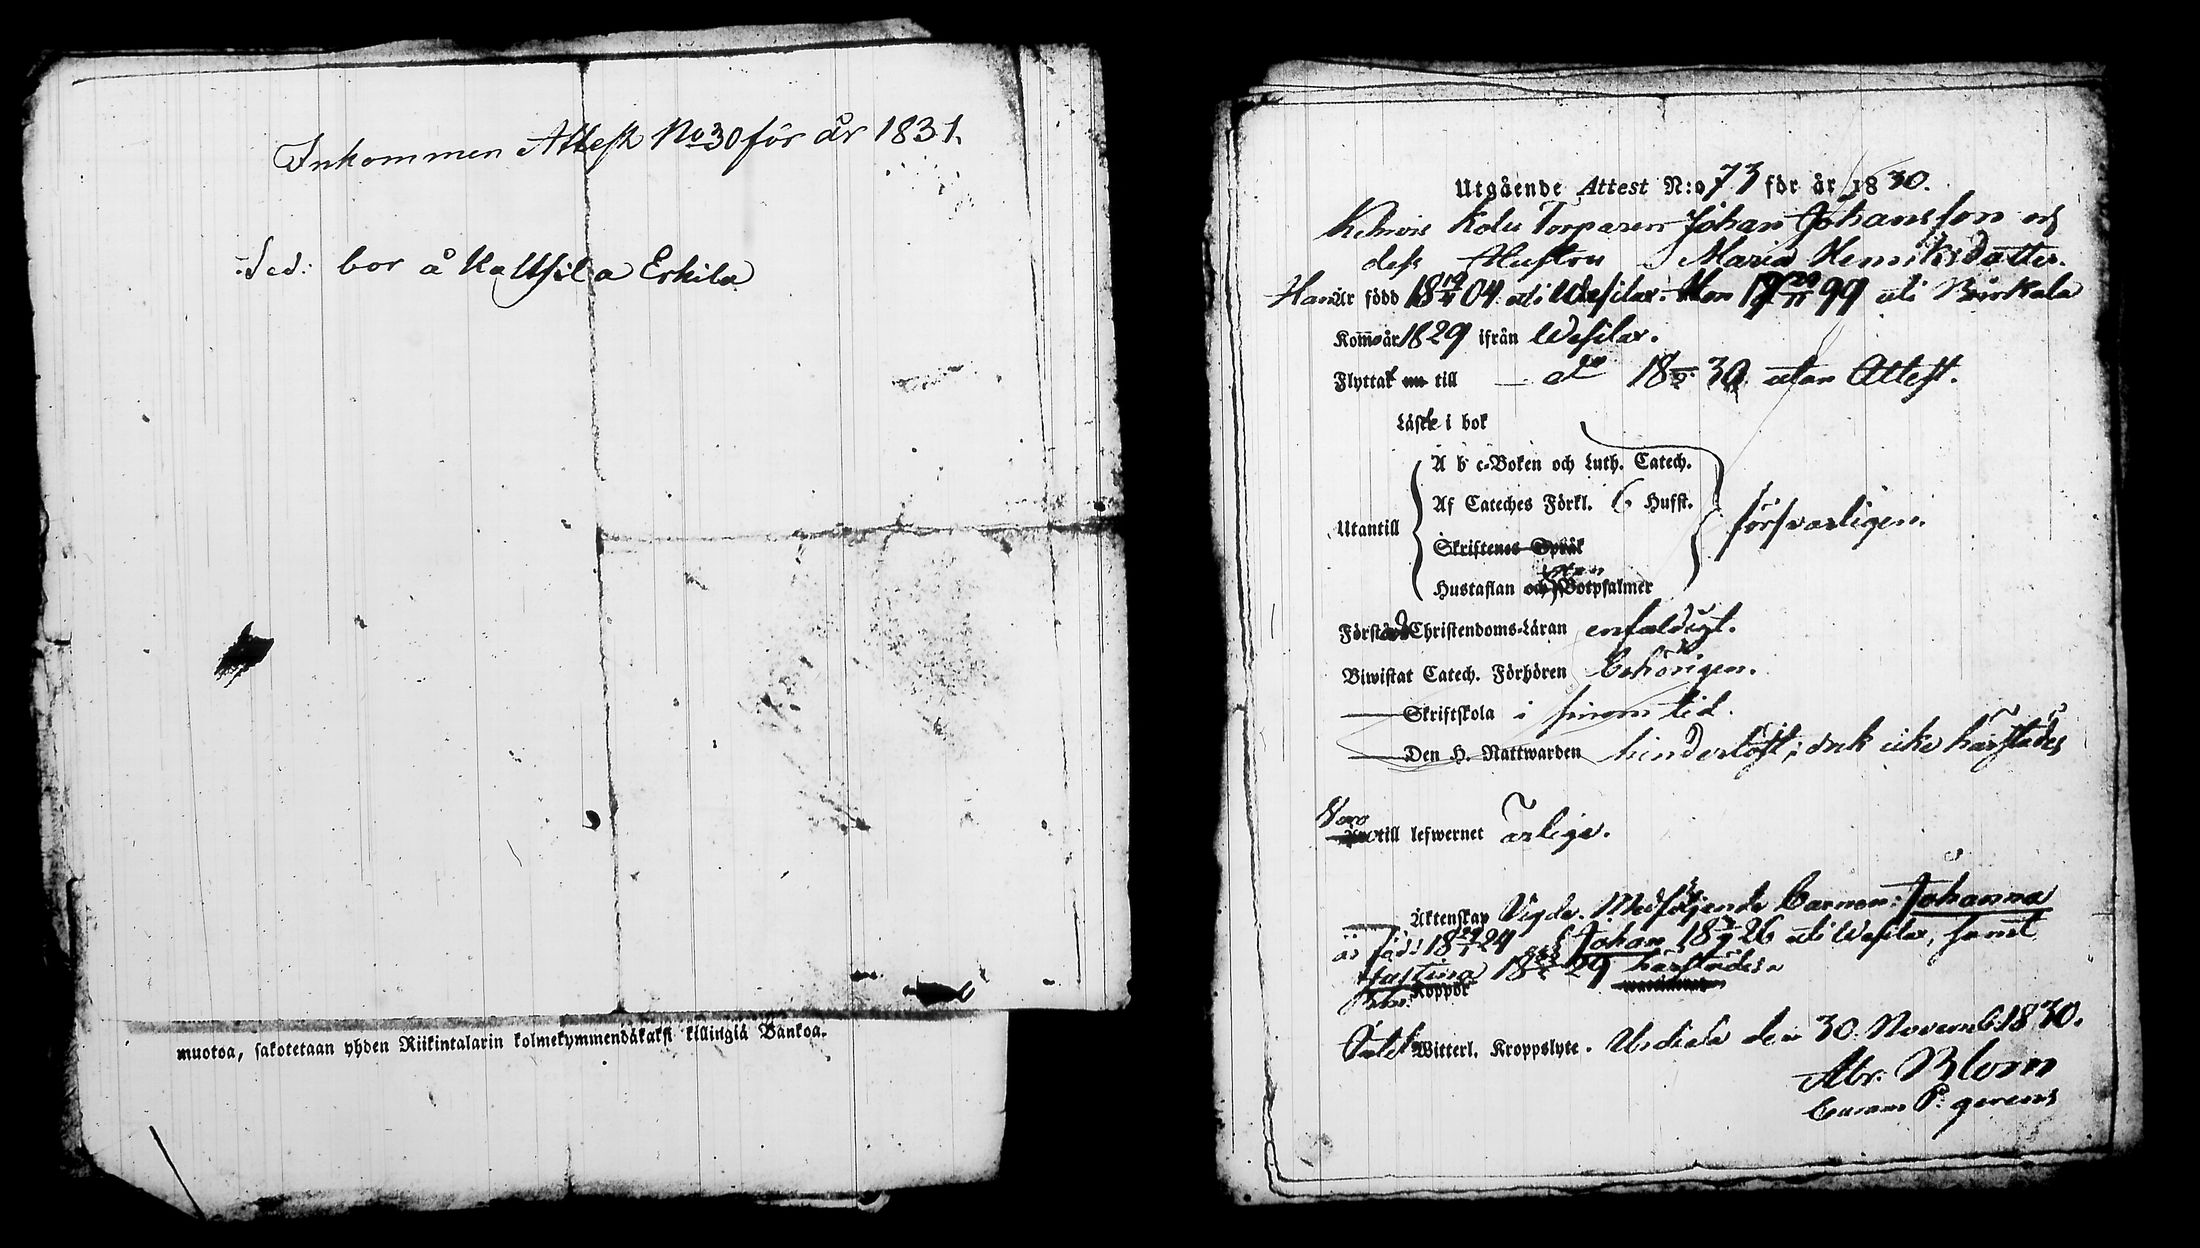 Inkommen Attest No 30 för år 1831.
:Sed: bor å Kaltsila Erkila
muotoa, sakotetaan yhden Riikintalarin kolmekymmendäkaksi killingiä Bankoa.
Utgående Attest N:o 73 för år 1830.
Kolu Torparen Johan Johansson och
dess Hustru Maria Henriksdotter.
Han är född 18 04 uti Wesilax. Hon 17 99 uti Birkala
Kommo år 1829 ifrån Wesilax.
Flyttat till — do 18 30 utan Attest.
Läste i bok
Utantill
A b c-Boken och Luth. Catech.
Af Cateches Förkl. 6 Hufst.
Skriftenes Språk
Hustaflan och Botpsalmer
försvarligen.
Förstånd Christendoms-Läran enfaldigt.
Biwistat Catech. Förhören behörigen.
— Skriftskola i sinom tid.
— Den H. Nattwarden hinderlöst, dock icke härstädes
Voro till lefwernet ärlige.
— Äktenskap Vigde. Medföljende barnen: Johanna
är född 18 24 Johan 18 26 uti Wesilax, samt
Justina 18 29 härstädes
Koppor
Witterl. Kroppslyte. Urdiala den 30 Novemb. 1830.
Abr. Blom
Curam P. gerens